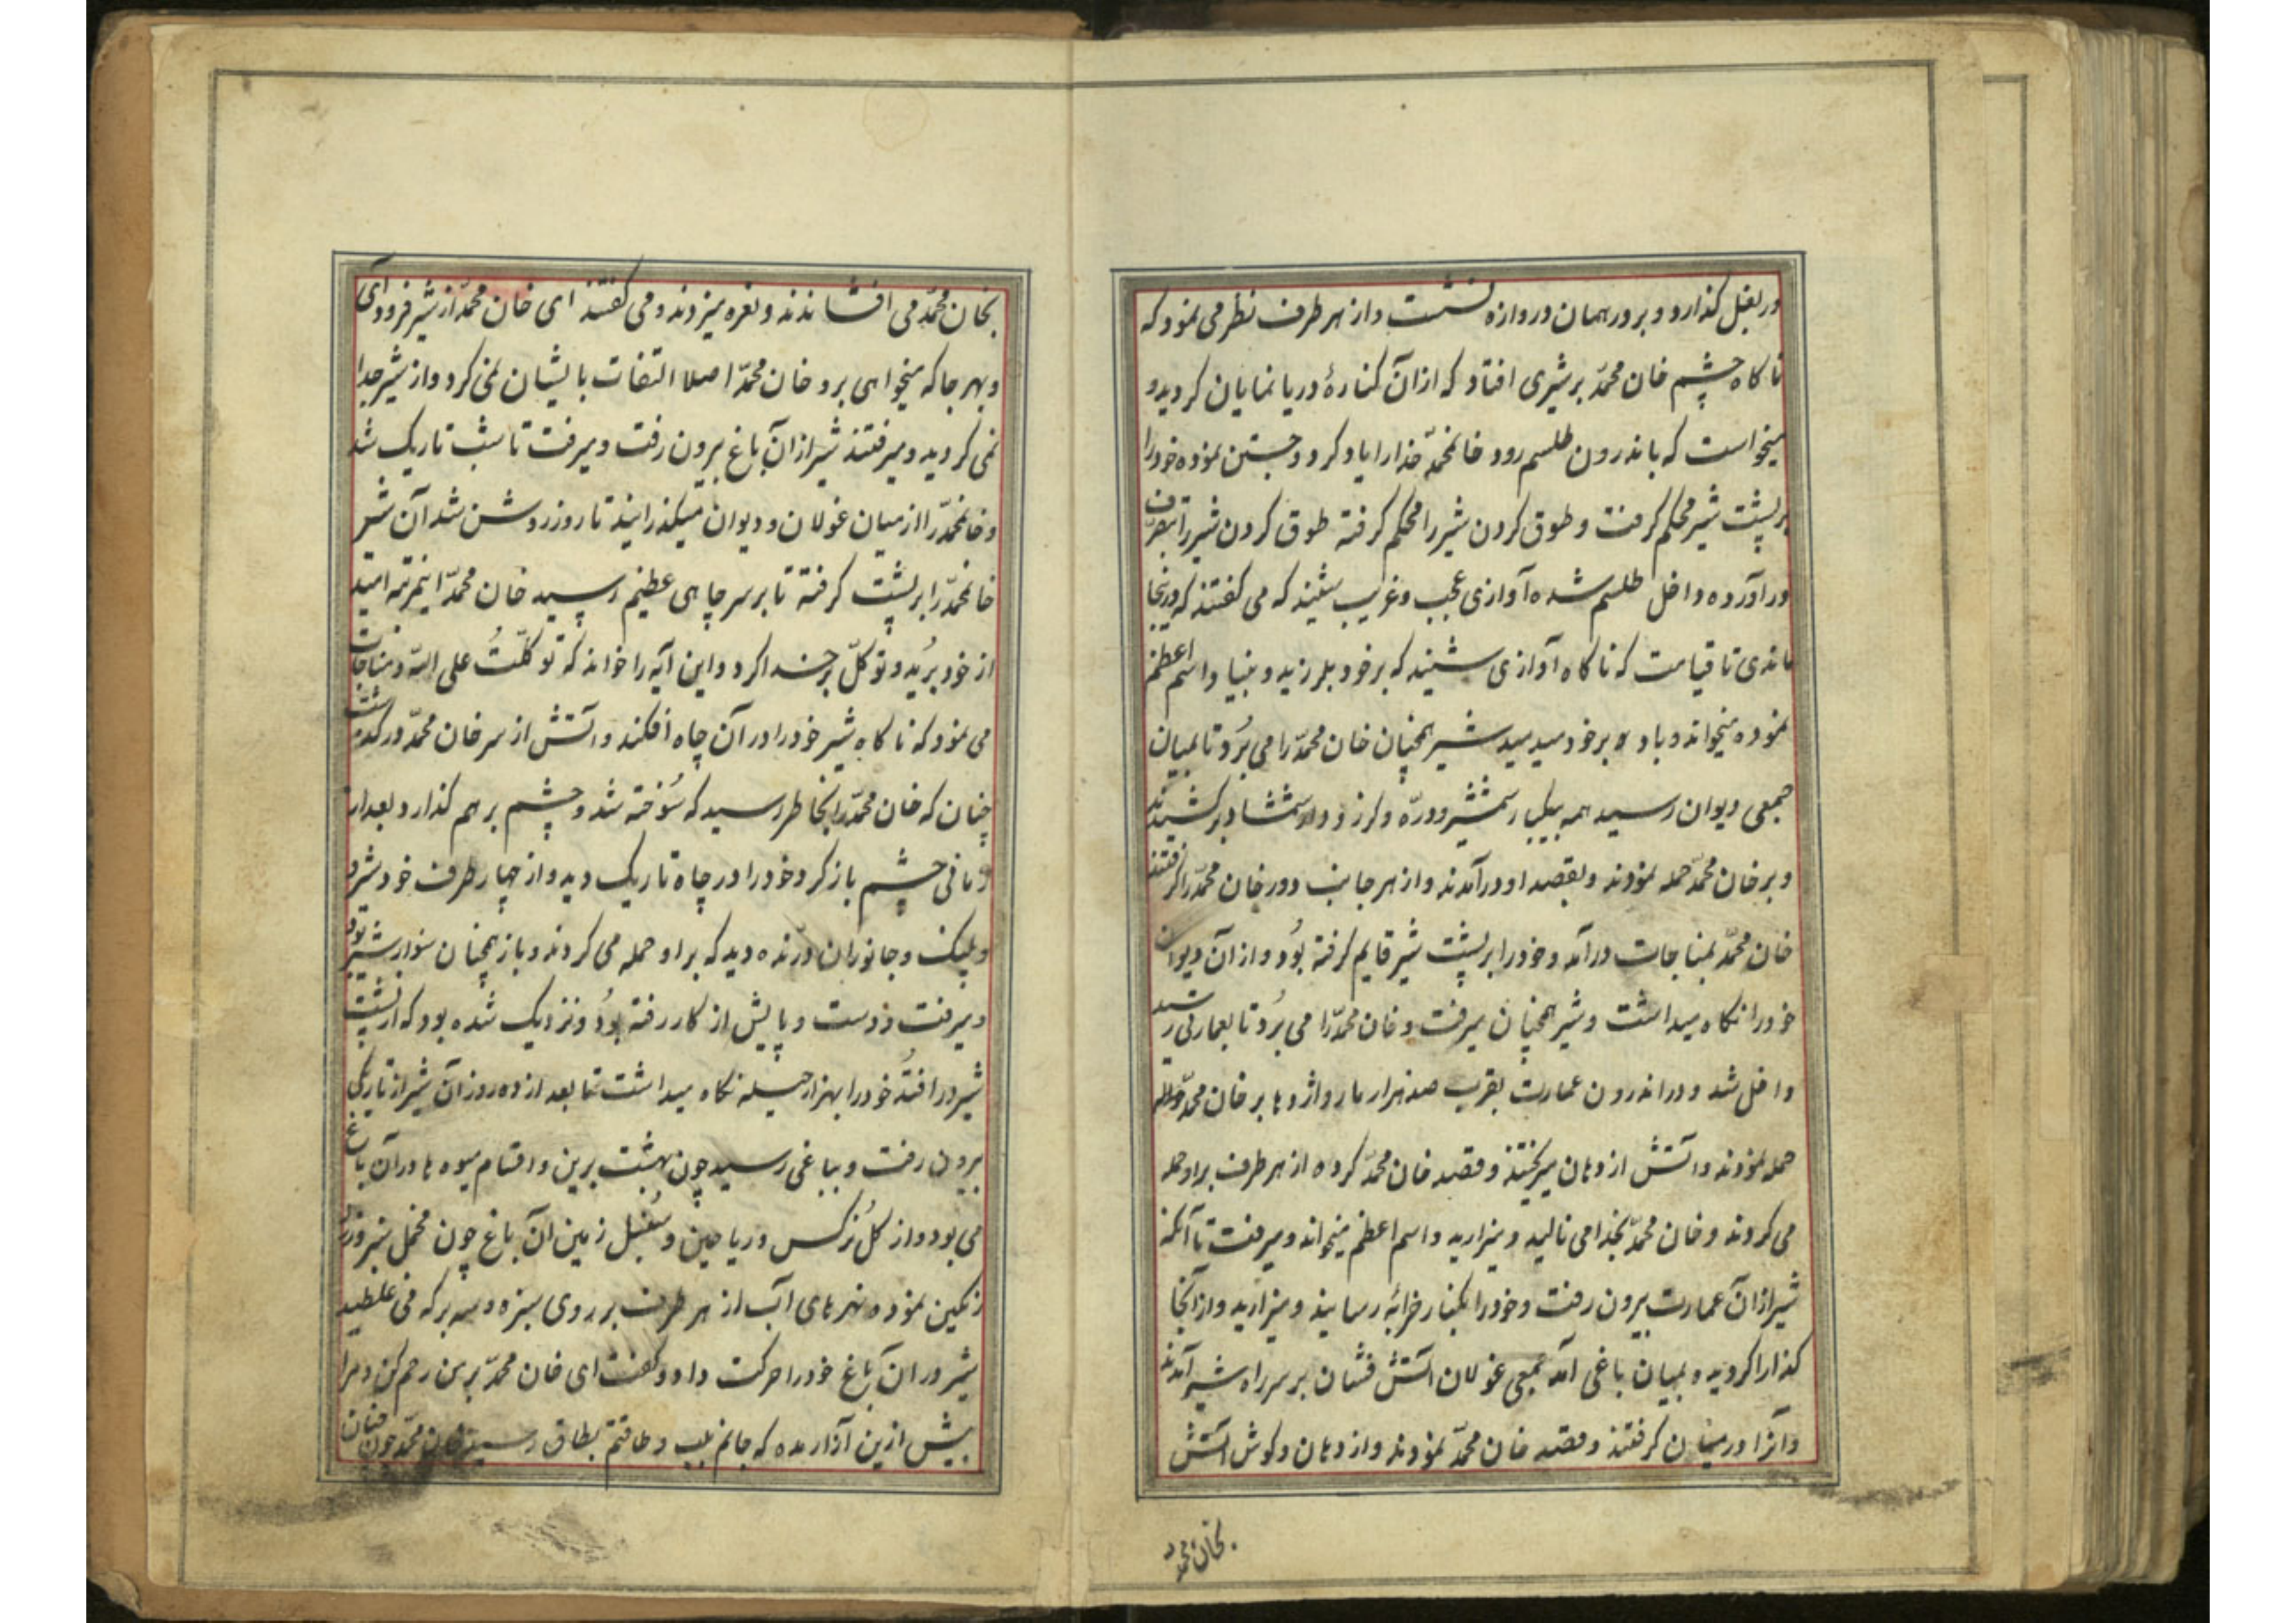 در بغل کذارد و برور همان دروازه نشست و از هر طرف نظر می نمود که
ناکاه چشم خان محمّد بر شیری افتاد که ازان کنارهٔ دریا نمایان کردید و
میخواست که باندرون طلسم رود خانمحمّد خدا را یاد کرد و جستن نموده خود را
بر پشت شیر محکم کرفت و طوق کردن شیر را محکم کرفته طوق کردن شیر را بتصرف
در آورده داخل طلسم شده آوازی عجب و غریب شنید که می کفتند که در اینجا
ماندی تا قیامت که ناکاه آوازی شنید که بر خود بلرزید و اسم اعظم
نموده میخواند و باد بر خود میدمید شیر همچنان خان محمّد را می بُرد تا بمیان
جمعی دیوان رسید همه بیکبار شمشیر و درّه و کرز و دارشمشاد بر کشیدند
و بر خان محمّد حمله نمودند و بقصد او در آمدند و از هر جانب دور خان محمّد را کرفتند
خان محمّد بمناجات در آمد و خود را بر پشت شیر قایم کرفته بُود و از آن دیوان
خود را نکاه میداشت و شیر همچنان میرفت و خان محمّد را می بُرد تا بعمارتی رسید
داخل شد و در اندرون عمارت بقریب صد هزار مار و اژدها بر خان محمّد
حمله نمودند و آتش از دهان میریختند و قصد خان محمّد کرده از هر طرف بر او حمله
می کردند و خان محمّد بخدا می نالید و میزارید و اسم اعظم میخواند و میرفت تا آنکه
شیر ازان عمارت بیرون رفت و خود را بکنار خرابهٔ رسانید و میزارید و از آنجا
کذارا کردیده بمیان باغی آمد جمعی غولان آتش فشان بر سر راه شیر آمدند
و آنرا در میان کرفتند و قصد خان محمّد نمودند و از دهان و کوش آتش
بخان محمّد
بخان محمّد می افشاندند و نعره میزدند و می کفتند ای خان محمّد از شیر فرود آی
و بهر جا که میخواهی برو خان محمّد اصلا التفات بایشان نمی کرد و از شیر جدا
نمی کردید و میرفتند شیر ازان باغ بیرون رفت و میرفت تا شب تاریک شد
و خانمحمّد را از میان غولان و دیوان میکذرانید تا روز روشن شد آن شیر
خانمحمّد را بر پشت کرفته تا بر سر چاهی عظیم رسید خان محمّد اینمرتبه امید
از خود بُرید و توکلّ بر خدا کرد و این آیه را خواند که توکلّتُ علی اللّه و مناجات
می نمود که ناکاه شیر خود را در آن چاه افکند و آتش از سر خان محمّد در کذشت
چنان که خان محمّد را بخاطر رسید که سُوخته شد و چشم بر هم کذارد بعد از
زمانی چشم باز کرد خود را در چاه تاریک دید و از چهار طرف خود شیر
و پلنک و جانوران درّنده دید که بر او حمله می کردند و باز همچنان سوار شیر بود
و میرفت و دست و پایش از کار رفته بُود و نزدیک شده بود که از پشت
شیر در افتد خود را بهزار حیله نکاه میداشت تا بعد از ده روز آن شیر از تاریکی
بیرون رفت و بباغی رسید چون بهشت برین و اقسام میوه ها در آن باغ
می بود و از کل نرکس و ریاحین و سُنبل زمین آن باغ چون مخمل سبز و زرد
رنکین نموده نهرهای آب از هر طرف بر روی سبزه و سه برکه می غلطید
شیر در ان باغ خود را حرکت داد و کفت ای خان محمّد بر من رحم کن و مرا
بیش ازین آزار مده که جانم بلب و طاقتم بطاق رسید خان محمّد چون چنان